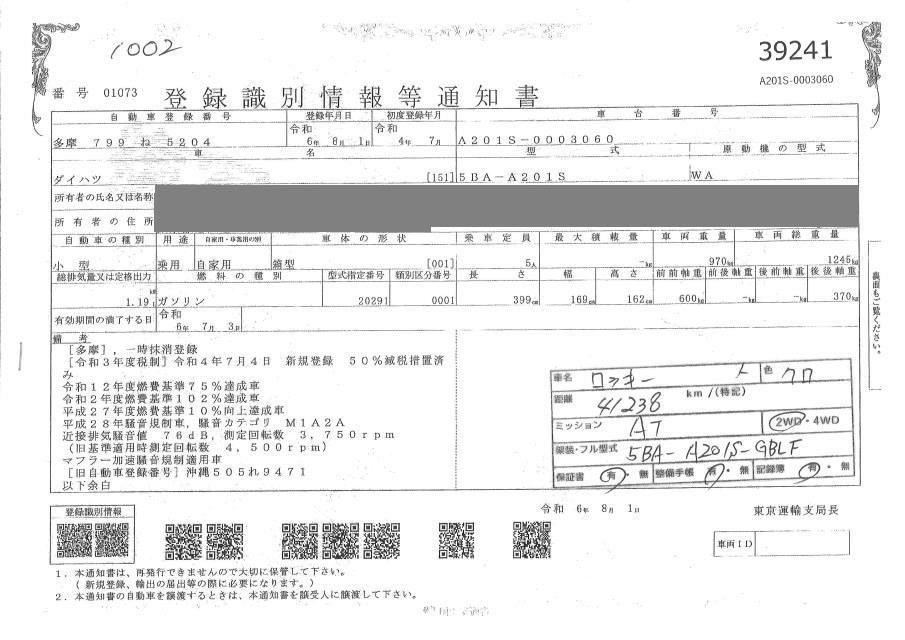 1002
39241
A201S-0003060
番号 01073 登録識別情報等通知書
自動車登録番号 登録年月日 初度登録年月 車台番号
多摩 799 ね 5204 令和 6年 8月 1日 令和 4年 7月 A201S-0003060
車名 型式 原動機の型式
ダイハツ [151] 5BA-A201S WA
所有者の氏名又は名称
所有者の住所
自動車の種別 用途 自家用・事業用の別 車体の形状 乗車定員 最大積載量 車両重量 車両総重量
小型 乗用 自家用 箱型 [001] 5人 -kg 970kg 1245kg
総排気量又は定格出力 燃料の種別 型式指定番号 類別区分番号 長さ 幅 高さ 前前軸重 前後軸重 後前軸重 後後軸重
1.19 kW ガソリン 20291 0001 399cm 169cm 162cm 600kg -kg -kg 370kg
有効期間の満了する日 令和 6年 7月 3日
備考
[多摩],一時抹消登録
[令和3年度税制]令和4年7月4日 新規登録 50%減税措置済
み
令和12年度燃費基準75%達成車
令和2年度燃費基準102%達成車
平成27年度燃費基準10%向上達成車
平成28年騒音規制車,騒音カテゴリ M1A2A
近接排気騒音値 76dB,測定回転数 3,750rpm
(旧基準適用時測定回転数 4,500rpm)
マフラー加速騒音規制適用車
[旧自動車登録番号]沖縄505れ9471
以下余白
車名 ロッキー 色 クロ
距離 41238 km/(特記)
ミッション AT 2WD・4WD
架装・フル型式 5BA-A201S-GBLF
保証書 有・無 整備手帳 有・無 記録簿 有・無
裏面もご覧ください。
令和 6年 8月 1日 東京運輸支局長
登録識別情報
車両ID
1.本通知書は、再発行できませんので大切に保管して下さい。
(新規登録、輸出の届出等の際に必要になります。)
2.本通知書の自動車を譲渡するときは、本通知書を譲受人に譲渡して下さい。